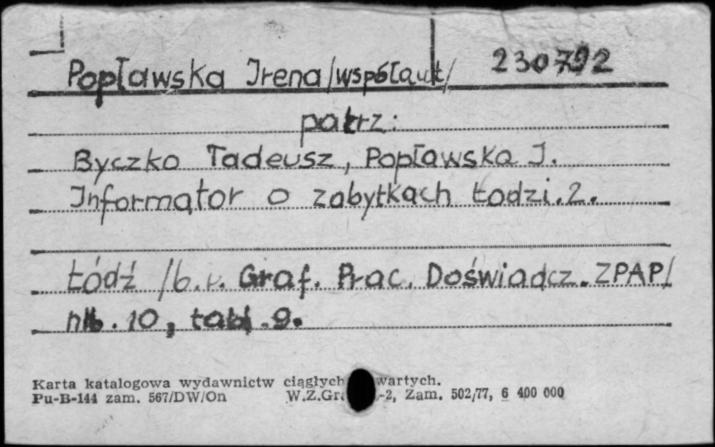 Popławska Irena /współaut/ 230792
patrz:
Byczko Tadeusz, Popławska J.
Informator o zabytkach Łodzi. 2.
Łódź /b. r. Graf. Prac. Doświadcz. ZPAP/
nlb. 10, tabl. 9.
Karta katalogowa wydawnictw ciągłych wartych.
Pu-B-144 zam. 567/DW/On W.Z.Gr -2, Zam. 502/77, 6 400 000